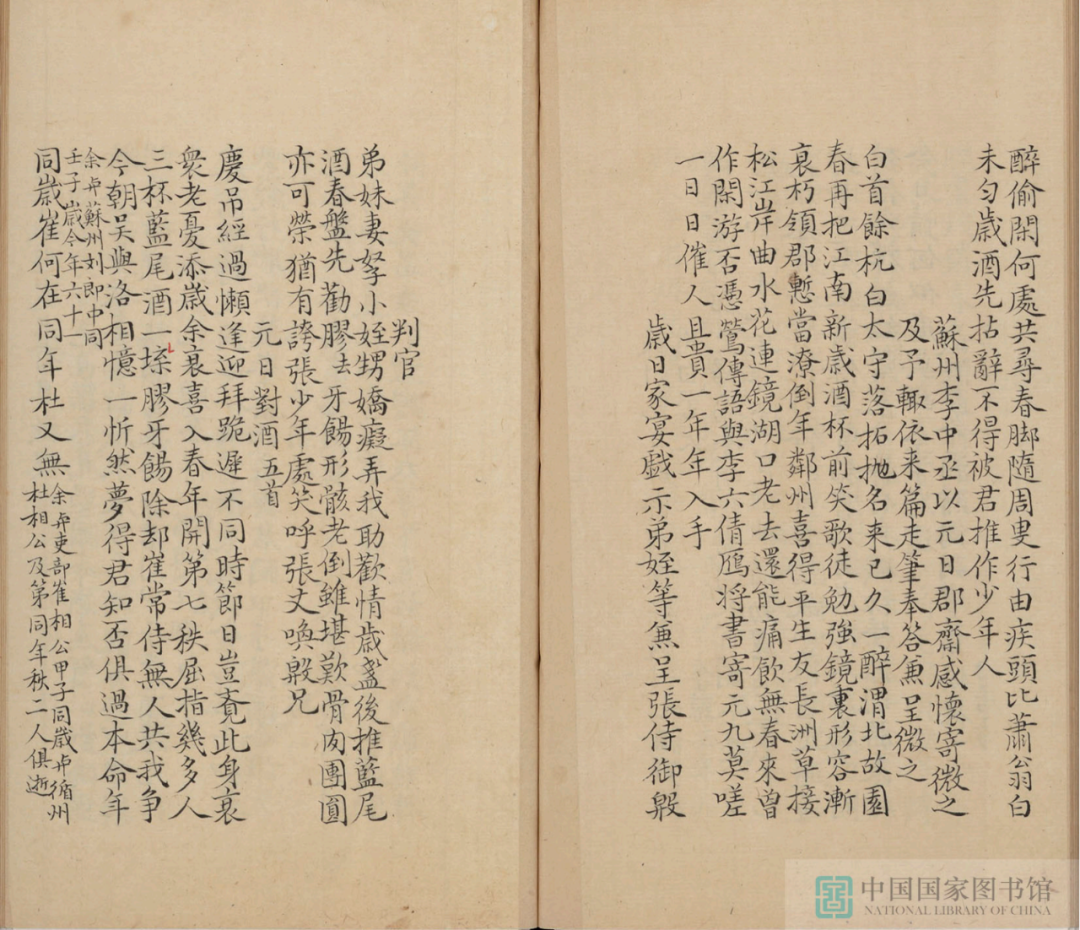 醉偷閑何處共尋春脚隨周叟行由疾頭比蕭翁白
未匀歲酒先拈辭不得被君推作少年人
蘇州李中丞以元日郡齋感懷寄微之
及予輙依来篇走筆奉答兼呈微之
白首餘杭白太守落拓抛名来已久一醉渭北故園
春再把江南新歲酒杯前笑歌徒勉強鏡裏形容漸
衰朽領郡慙當潦倒年鄰州喜得平生友長洲草接
松江岸曲水花連鏡湖口老去還能痛飲無春來曾
作閑游否憑鶯傳語與李六倩鴈将書寄元九莫嗟
一日日催人且貴一年年入手
歲日家宴戲示弟姪等兼呈張侍御殷
判官
弟妹妻孥小姪甥嬌癡弄我助歡情歲盞後推藍尾
酒春盤先勸膠去牙餳形骸老倒雖堪歎骨肉團圓
亦可榮猶有誇張少年處笑呼張丈喚殷兄
元日對酒五首
慶吊經過懶逢迎拜跪遲不同時節日豈覔此身衰
衆老憂添歲余衰喜入春年開第七秩屈指幾多人
三杯藍尾酒一楪膠牙餳除却崔常侍無人共我争
今朝吴與洛相憶一忻然夢得君知否俱過本命年
余与蘇州刘郎中同
壬子歲今年六十一
同歲崔何在同年杜又無
余与吏部崔相公甲子同歲与循州
杜相公及第同年秩二人俱逝
中国国家图书馆
NATIONAL LIBRARY OF CHINA